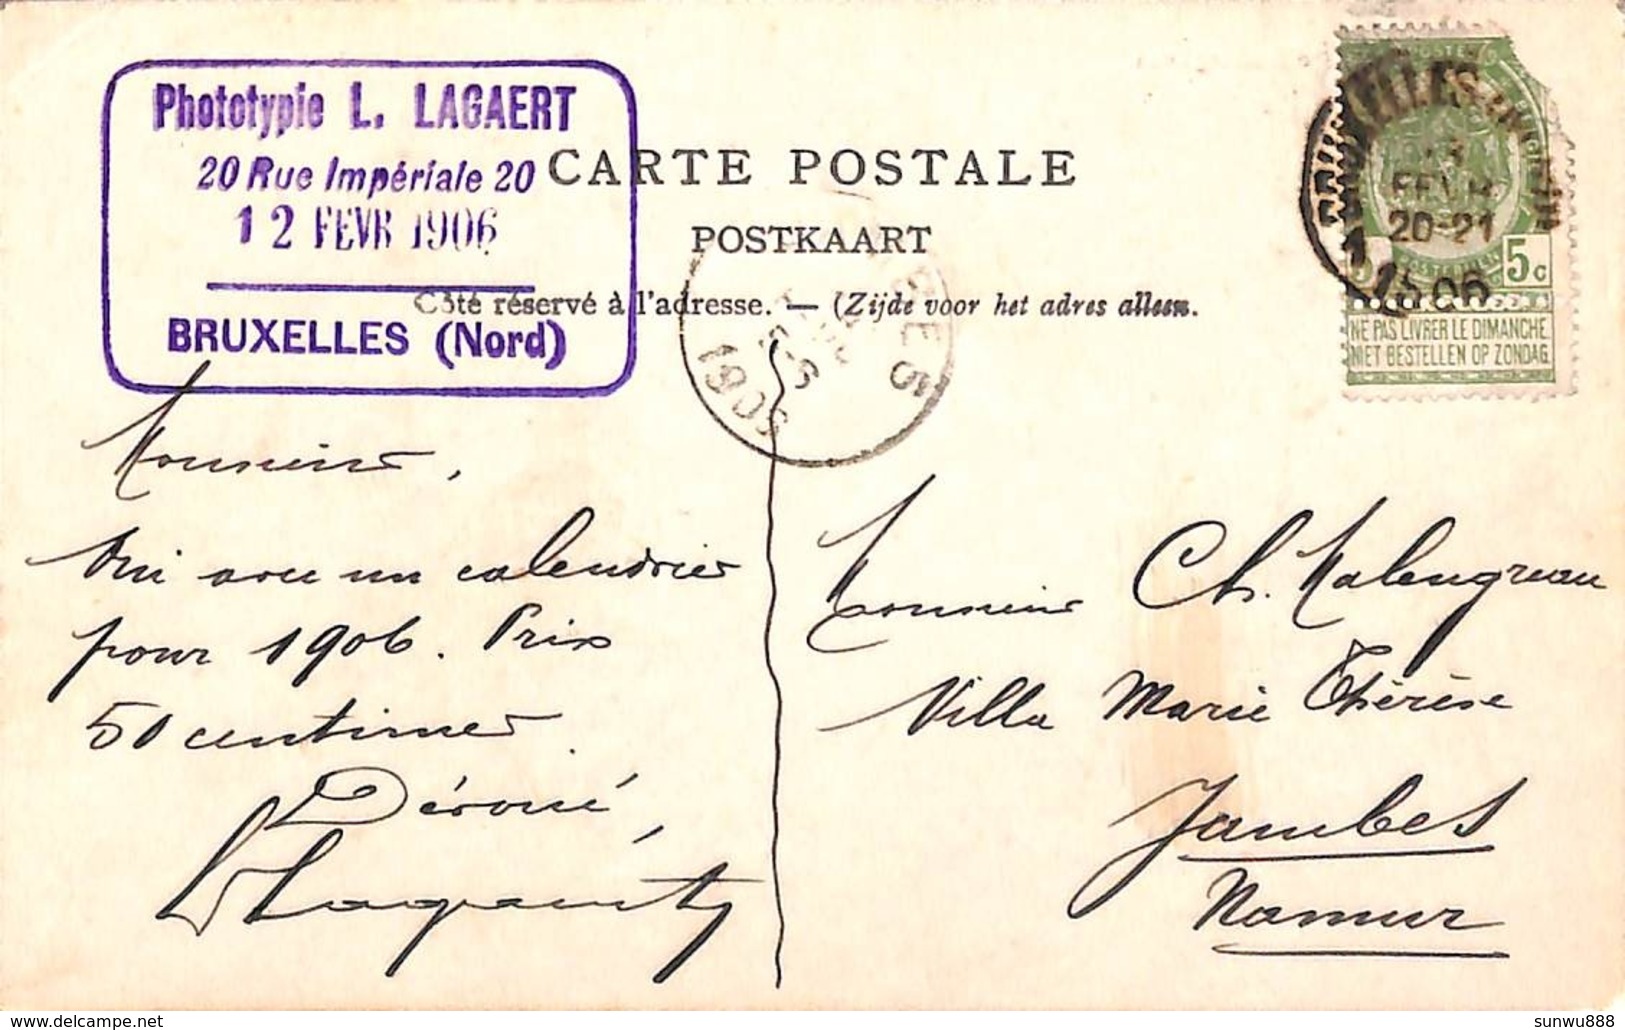 Phototypie L. LAGAERT
20 Rue Impériale 20
12 FEVR 1906
BRUXELLES (Nord)
CARTE POSTALE
POSTKAART
Côté réservé à l'adresse. — (Zijde voor het adres alleen.
BRUXELLES
FEVR
20-21
1906
5c
NE PAS LIVRER LE DIMANCHE.
NIET BESTELLEN OP ZONDAG.
JAMBES
5-6
1906
Monsieur,
Oui avec un calendrier
pour 1906. Prix
50 centimes.
Dévoué,
LLagaert
Monsieur Ch. Malengreau
Villa Marie Thérèse
Jambes
Namur
delcampe.net
sunwu888